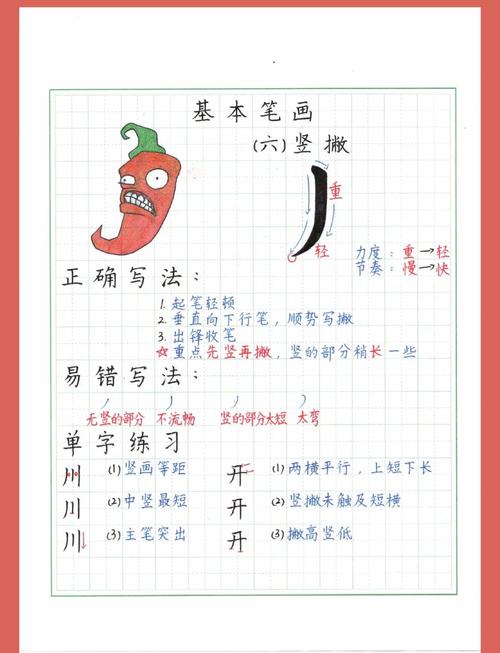 基本笔画
(六)竖撇
重
轻
力度：重→轻
节奏：慢→快
正确写法：
1.起笔轻顿
2.垂直向下行笔，顺势写撇
3.出锋收笔
☆重点先竖再撇，竖的部分稍长一些
易错写法：
无竖的部分 不流畅 竖的部分太短 太弯
单字练习
川 (1)竖画等距 开 (1)两横平行，上短下长
川 (2)中竖最短 开 (2)竖撇未触及短横
川 (3)主笔突出 开 (3)撇高竖低